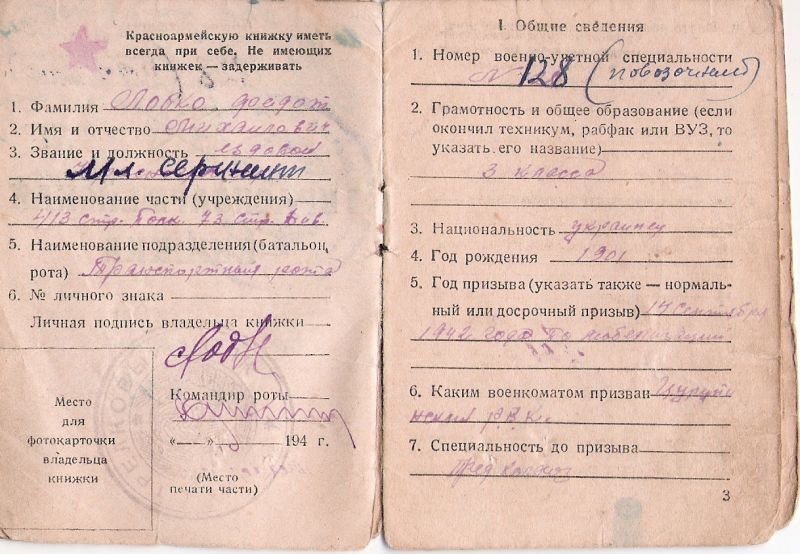 Красноармейскую книжку иметь
всегда при себе. Не имеющих
книжек — задерживать
1. Фамилия Лобко Федот
2. Имя и отчество Михайлович
3. Звание и должность ездовой
Мл. сержант
4. Наименование части (учреждения)
413 стр. Полк. 73 стр. Див.
5. Наименование подразделения (батальон,
рота) Транспортная рота
6. № личного знака
Личная подпись владельца книжки
Командир роты
« » 194 г.
(Место
печати части)
Место
для
фотокарточки
владельца
книжки
I. Общие сведения
1. Номер военно-учетной специальности
№ 128 (повозочный)
2. Грамотность и общее образование (если
окончил техникум, рабфак или ВУЗ, то
указать его название)
3 класса
3. Национальность украинец
4. Год рождения 1901
5. Год призыва (указать также — нормаль-
ный или досрочный призыв) 17 сентября
1942 года По мобилизации
6. Каким военкоматом призван
Р.В.К.
7. Специальность до призыва
колхоз
3